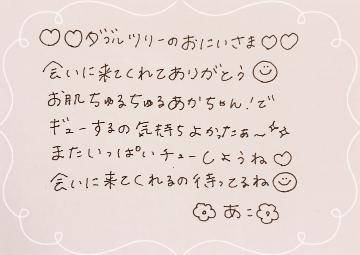 ♡♡ダブルツリーのおにいさま♡♡
会いに来てくれてありがとう☺
お肌ちゅるちゅるあかちゃん!で
ギューするの気持ちよかったぁ〜✩✩
またいっぱいチューしようね♡
会いに来てくれるの待ってるね☺
✿あこ✿